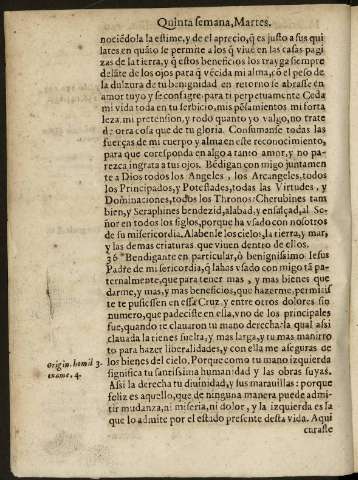 Quinta semana, Martes.
nociēdola la estime, y de el aprecio, q̄ es justo a sus qui
lates en quāto se permite a los q̄ viuē en las casas pagi
zas de la tierra, y q̄ estos beneficios los trayga siempre
delāte de los ojos para q̄ vēcida mi alma, cō el peso de
la dulzura de tu benignidad en retorno se abrase en
amor tuyo y se consagre para ti perpetuamente Ceda
mi vida toda en tu serbicio, mis pēsamientos mi forta
leza, mi pretension, y rodo quanto yo valgo, no trate
de otra cosa que de tu gloria. Consumanse todas las
fuerças de mi cuerpo y alma en este reconocimiento,
para que corresponda en algo a tanto amor, y no pa-
rezca ingrata a tus ojos. Bēdigan con migo juntamen
te a Dios todos los Angeles, los Arcangeles, todos
los Principados, y Potestades, todas las Virtudes, y
Dominaciones, todos los Thronos: Cherubines tam
bien, y Seraphines bendezid, alabad, y ensalçad, al Se-
ñor en todos los siglos, porque ha vsado con nosotros
de su misericordia. Alabenle los cielos, la tierra, y mar,
y las demas criaturas que viuen dentro de ellos.
36 Bendigante en particular, ò benignissimo Iesus
Padre de mi sericordia, q̄ lahas vsado con migo tā pa-
ternalmente, que para tener mas, y mas bienes que
darme, y mas, y mas beneficios, que hazerme, permitis
te te pusiessen en essa Cruz, y entre otros dolores sin
numero, que padeciste en ella, vno de los principales
fue, quando te clauaron tu mano derecha: la qual assi
clauada la tienes suelta, y mas larga, y tu mas manirro
to para hazer liberalidades, y con ella me aseguras de
los bienes del cielo. Porque como tu mano izquierda
significa tu santissima humanidad y las obras suyas.
Assi la derecha tu diuinidad, y sus marauillas: porque
feliz es aquello, que de ninguna manera puede admi-
tir mudanza, ni miseria, ni dolor, y la izquierda es la
que lo admite por el estado presente desta vida. Aqui
curaste
Origin. homil 3.
exame. 4.